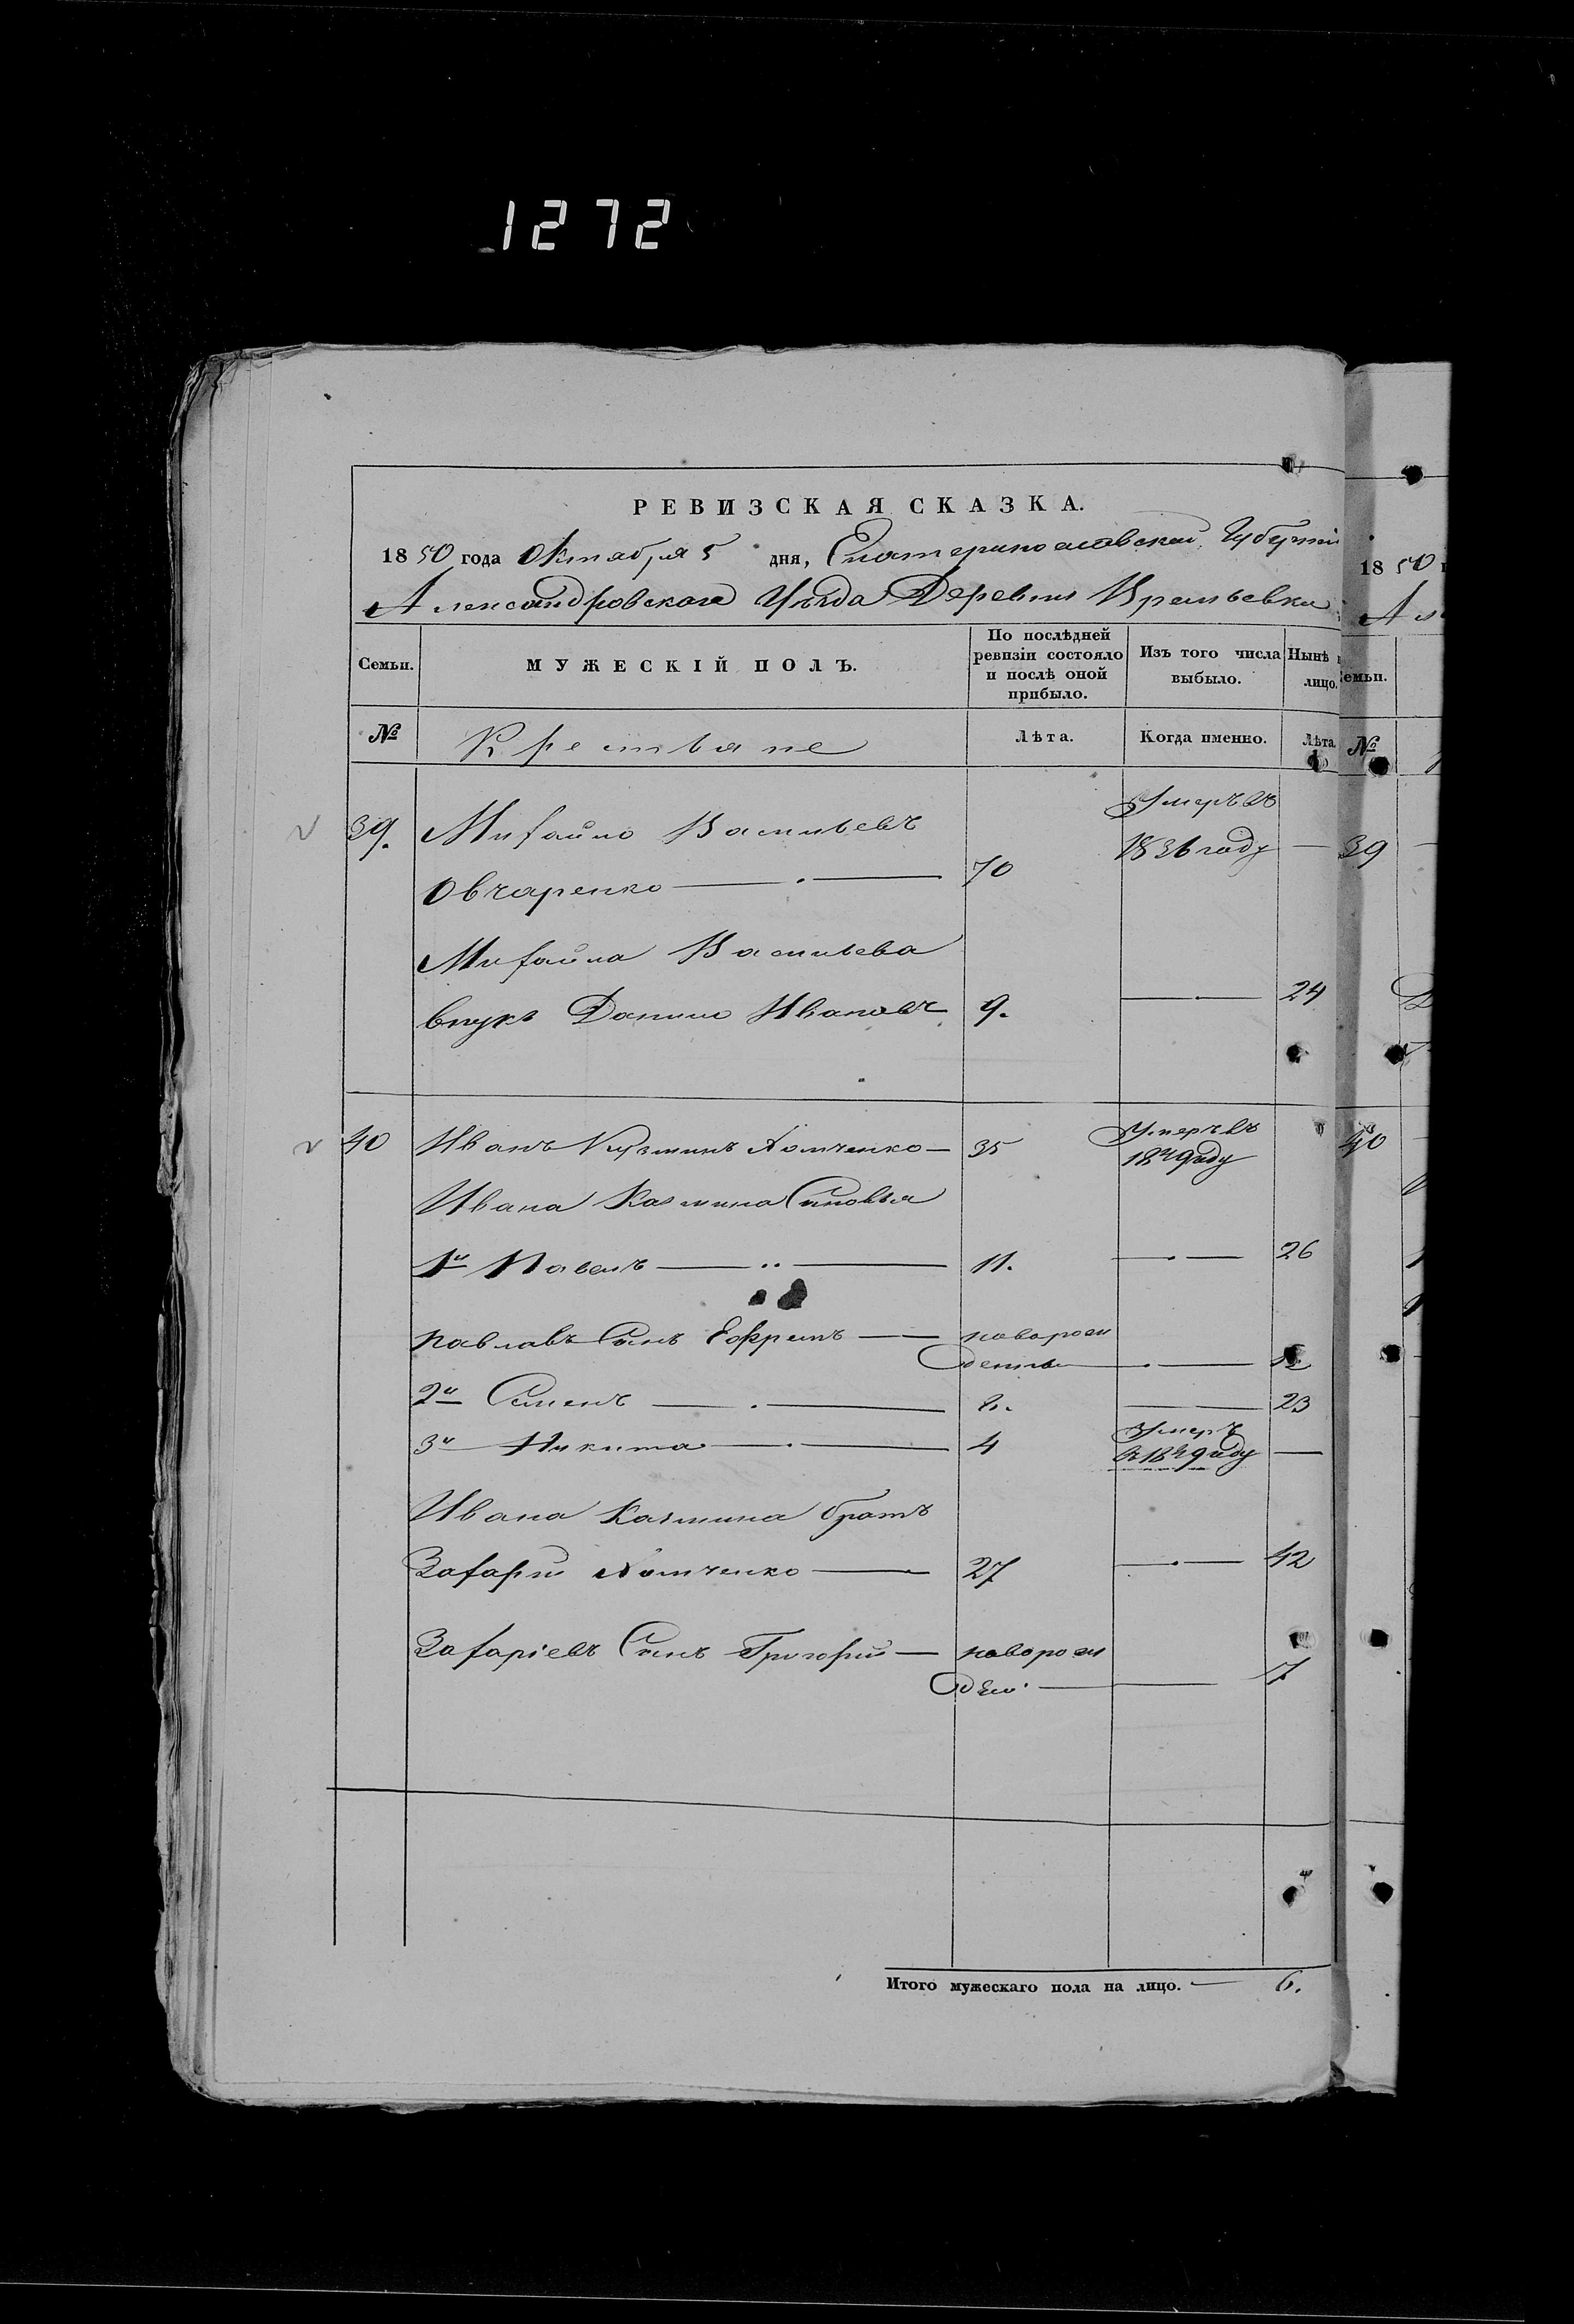 1272
РЕВИЗСКАЯ СКАЗКА.
1850 года Октября 5 дня, Екатеринославской Губерніи
Александровского Уѣзда Деревни Времьевки
Семьи. МУЖЕСКІЙ ПОЛЪ. По послѣдней ревизіи состояло и послѣ оной прибыло. Изъ того числа выбыло. Нынѣ лицо.
№ Крестьяне Лѣта. Когда именно. Лѣта
39. Михайло Васильевъ Умеръ въ
Овчаренко 70 1836 году
Михайла Васильева
внукъ Данило Ивановъ 9. 24
40 Иванъ Кузминъ Хомченко 35 Умеръ въ
1849 году
Ивана Казмина Сыновья
1й Павелъ 11. 26
Павлавъ Сынъ Ефремъ наворож
денны
2й Семенъ 8. 23
3й Никита 4 Умеръ
въ 1849 году
Ивана Казмина братъ
Захарій Хомченко 27 42
Захаріевъ Сынъ Григорій наворож
ден. 7
Итого мужескаго пола на лицо. 6.
1850
Ал
емьи.
№
39
40